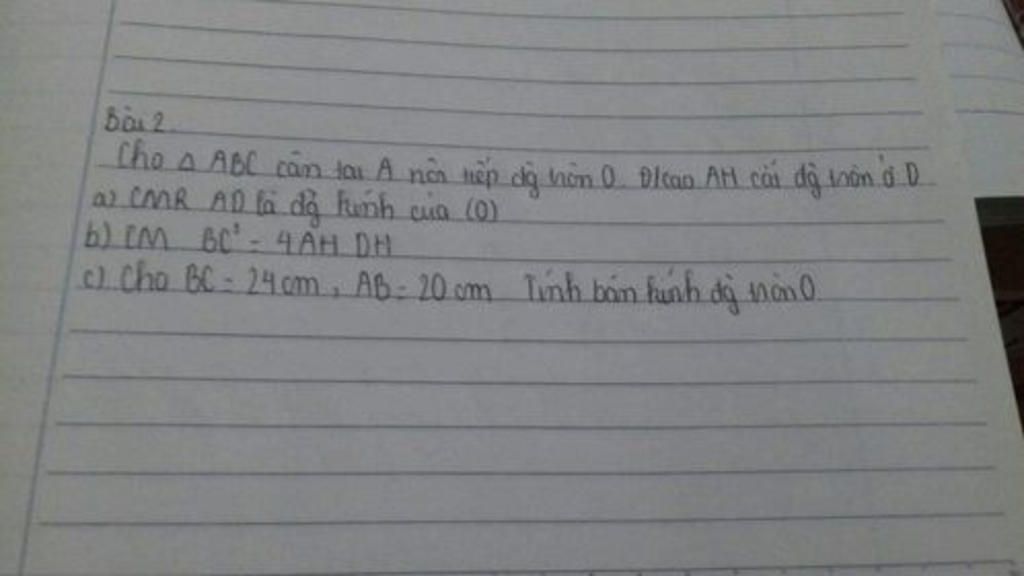 Bài 2.
Cho Δ ABC cân tại A nội tiếp đg tròn O. Đ/cao AH cắt đg tròn ở D
a) CMR AD là đg kính của (O)
b) CM BC² = 4AH.DH
c) Cho BC = 24cm, AB = 20cm Tính bán kính đg tròn O